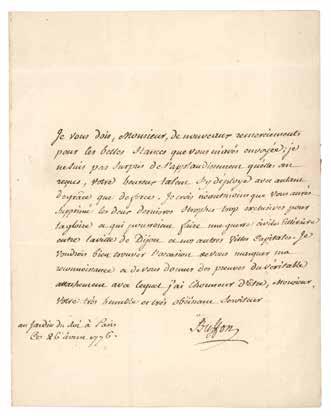 Je vous dois, Monsieur, de nouveaux remerciements
pour les belles Stances que vous m'avés envoyées; je
ne suis pas surpris de l'aplaudissement qu'elles ont
reçus, votre heureux talent s'y déploye avec autant
de grace que de force. Je crois néantmoins que vous aurés
Supprimé les deux dernieres Strophes trop exclusives pour
la gloire et qui pourroient faire une guerre civile littéraire
entre la ville de Dijon et nos autres Villes Capitales. Je
voudrois bien trouver l'occasion de vous marquer ma
reconnoissance et de vous donner des preuves du véritable
attachement avec lequel j'ai l'honneur d'Etre, Monsieur,
Votre très humble et très obéissant Serviteur
Buffon
au Jardin du Roi à Paris
Ce 26 avril 1776.